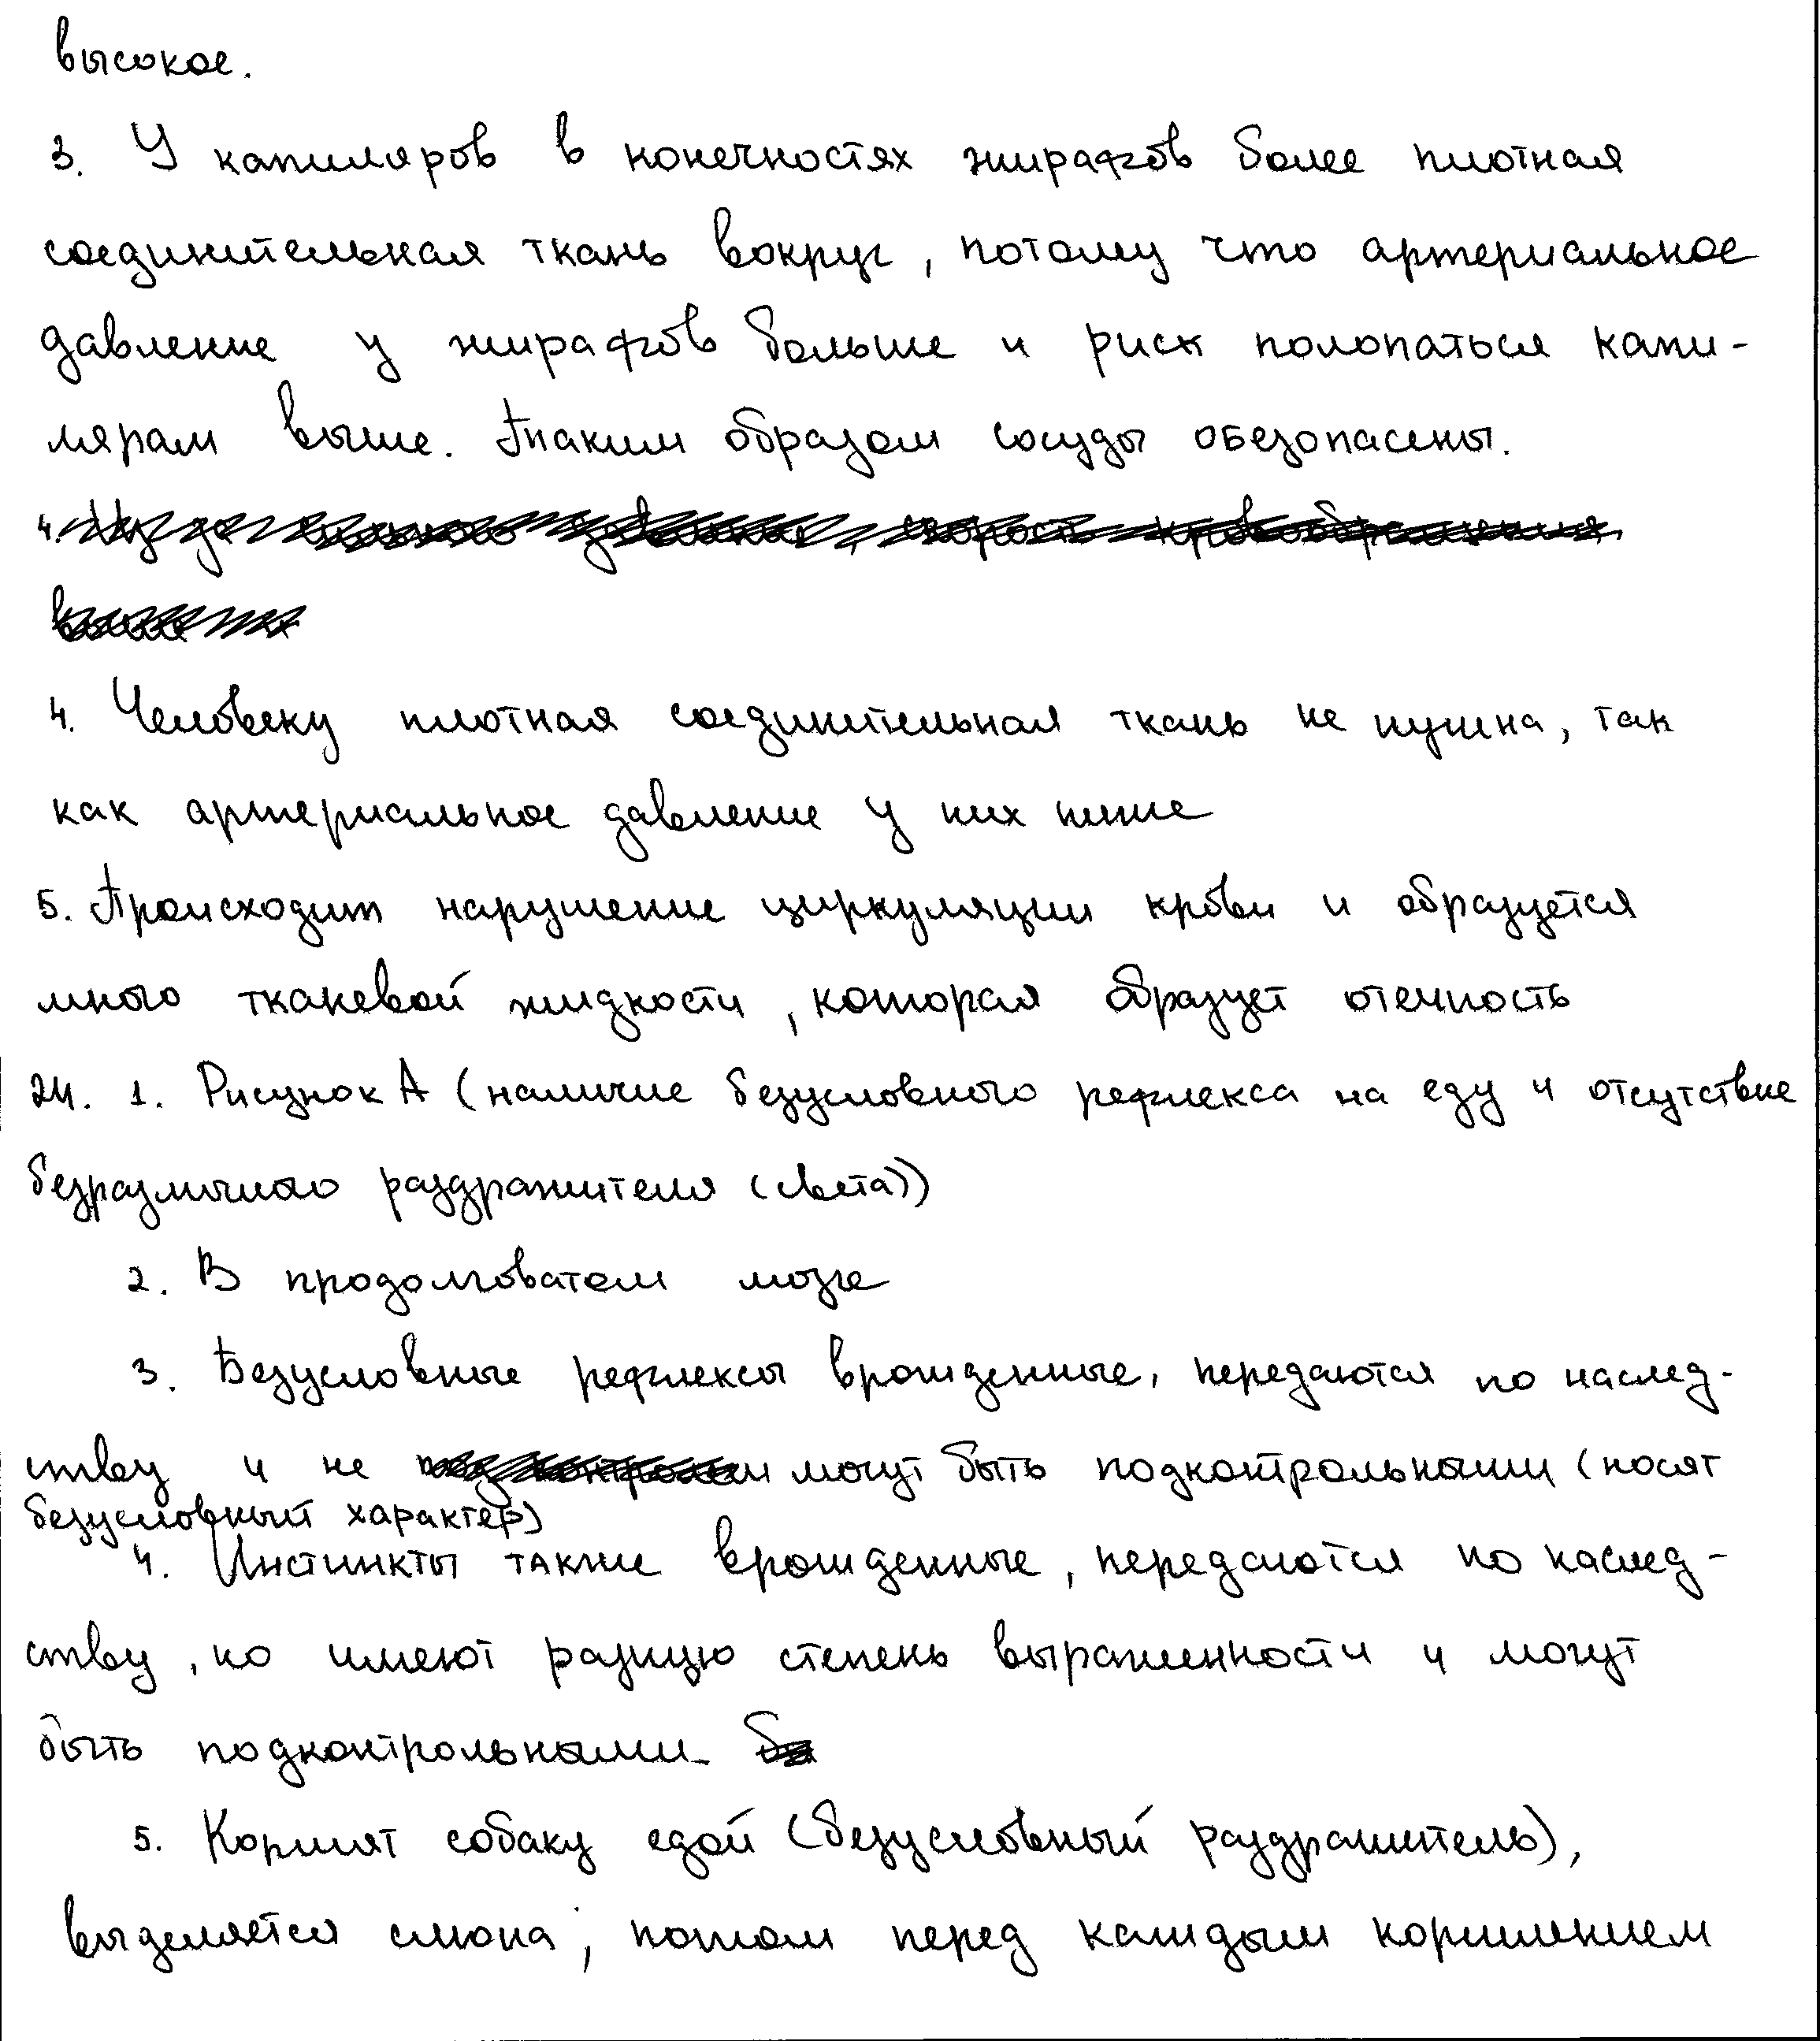 высокое.
3. У капиляров в конечностях жирафов более плотная
соединительная ткань вокруг, потому что артериальное
давление у жирафов больше и риск полопаться капи-
лярам выше. Таким образом сосуды обезопасены.
4.
4. Человеку плотная соединительная ткань не нужна, так
как артериальное давление у них ниже
5. Происходит нарушение циркуляции крови и образуется
много тканевой жидкости, которая образует отечность
24. 1. Рисунок А (наличие безусловного рефлекса на еду и отсутствие
безразличного раздражителя (света))
2. В продолговатом мозге
3. Безусловные рефлексы врожденные, передаются по наслед-
ству и не могут быть подконтрольными (носят
безусловный характер)
4. Инстинкты также врожденные, передаются по наслед-
ству, но имеют разную степень выраженности и могут
быть подконтрольными
5. Кормят собаку едой (безусловный раздражитель),
выделяется слюна; потом перед каждым кормлением